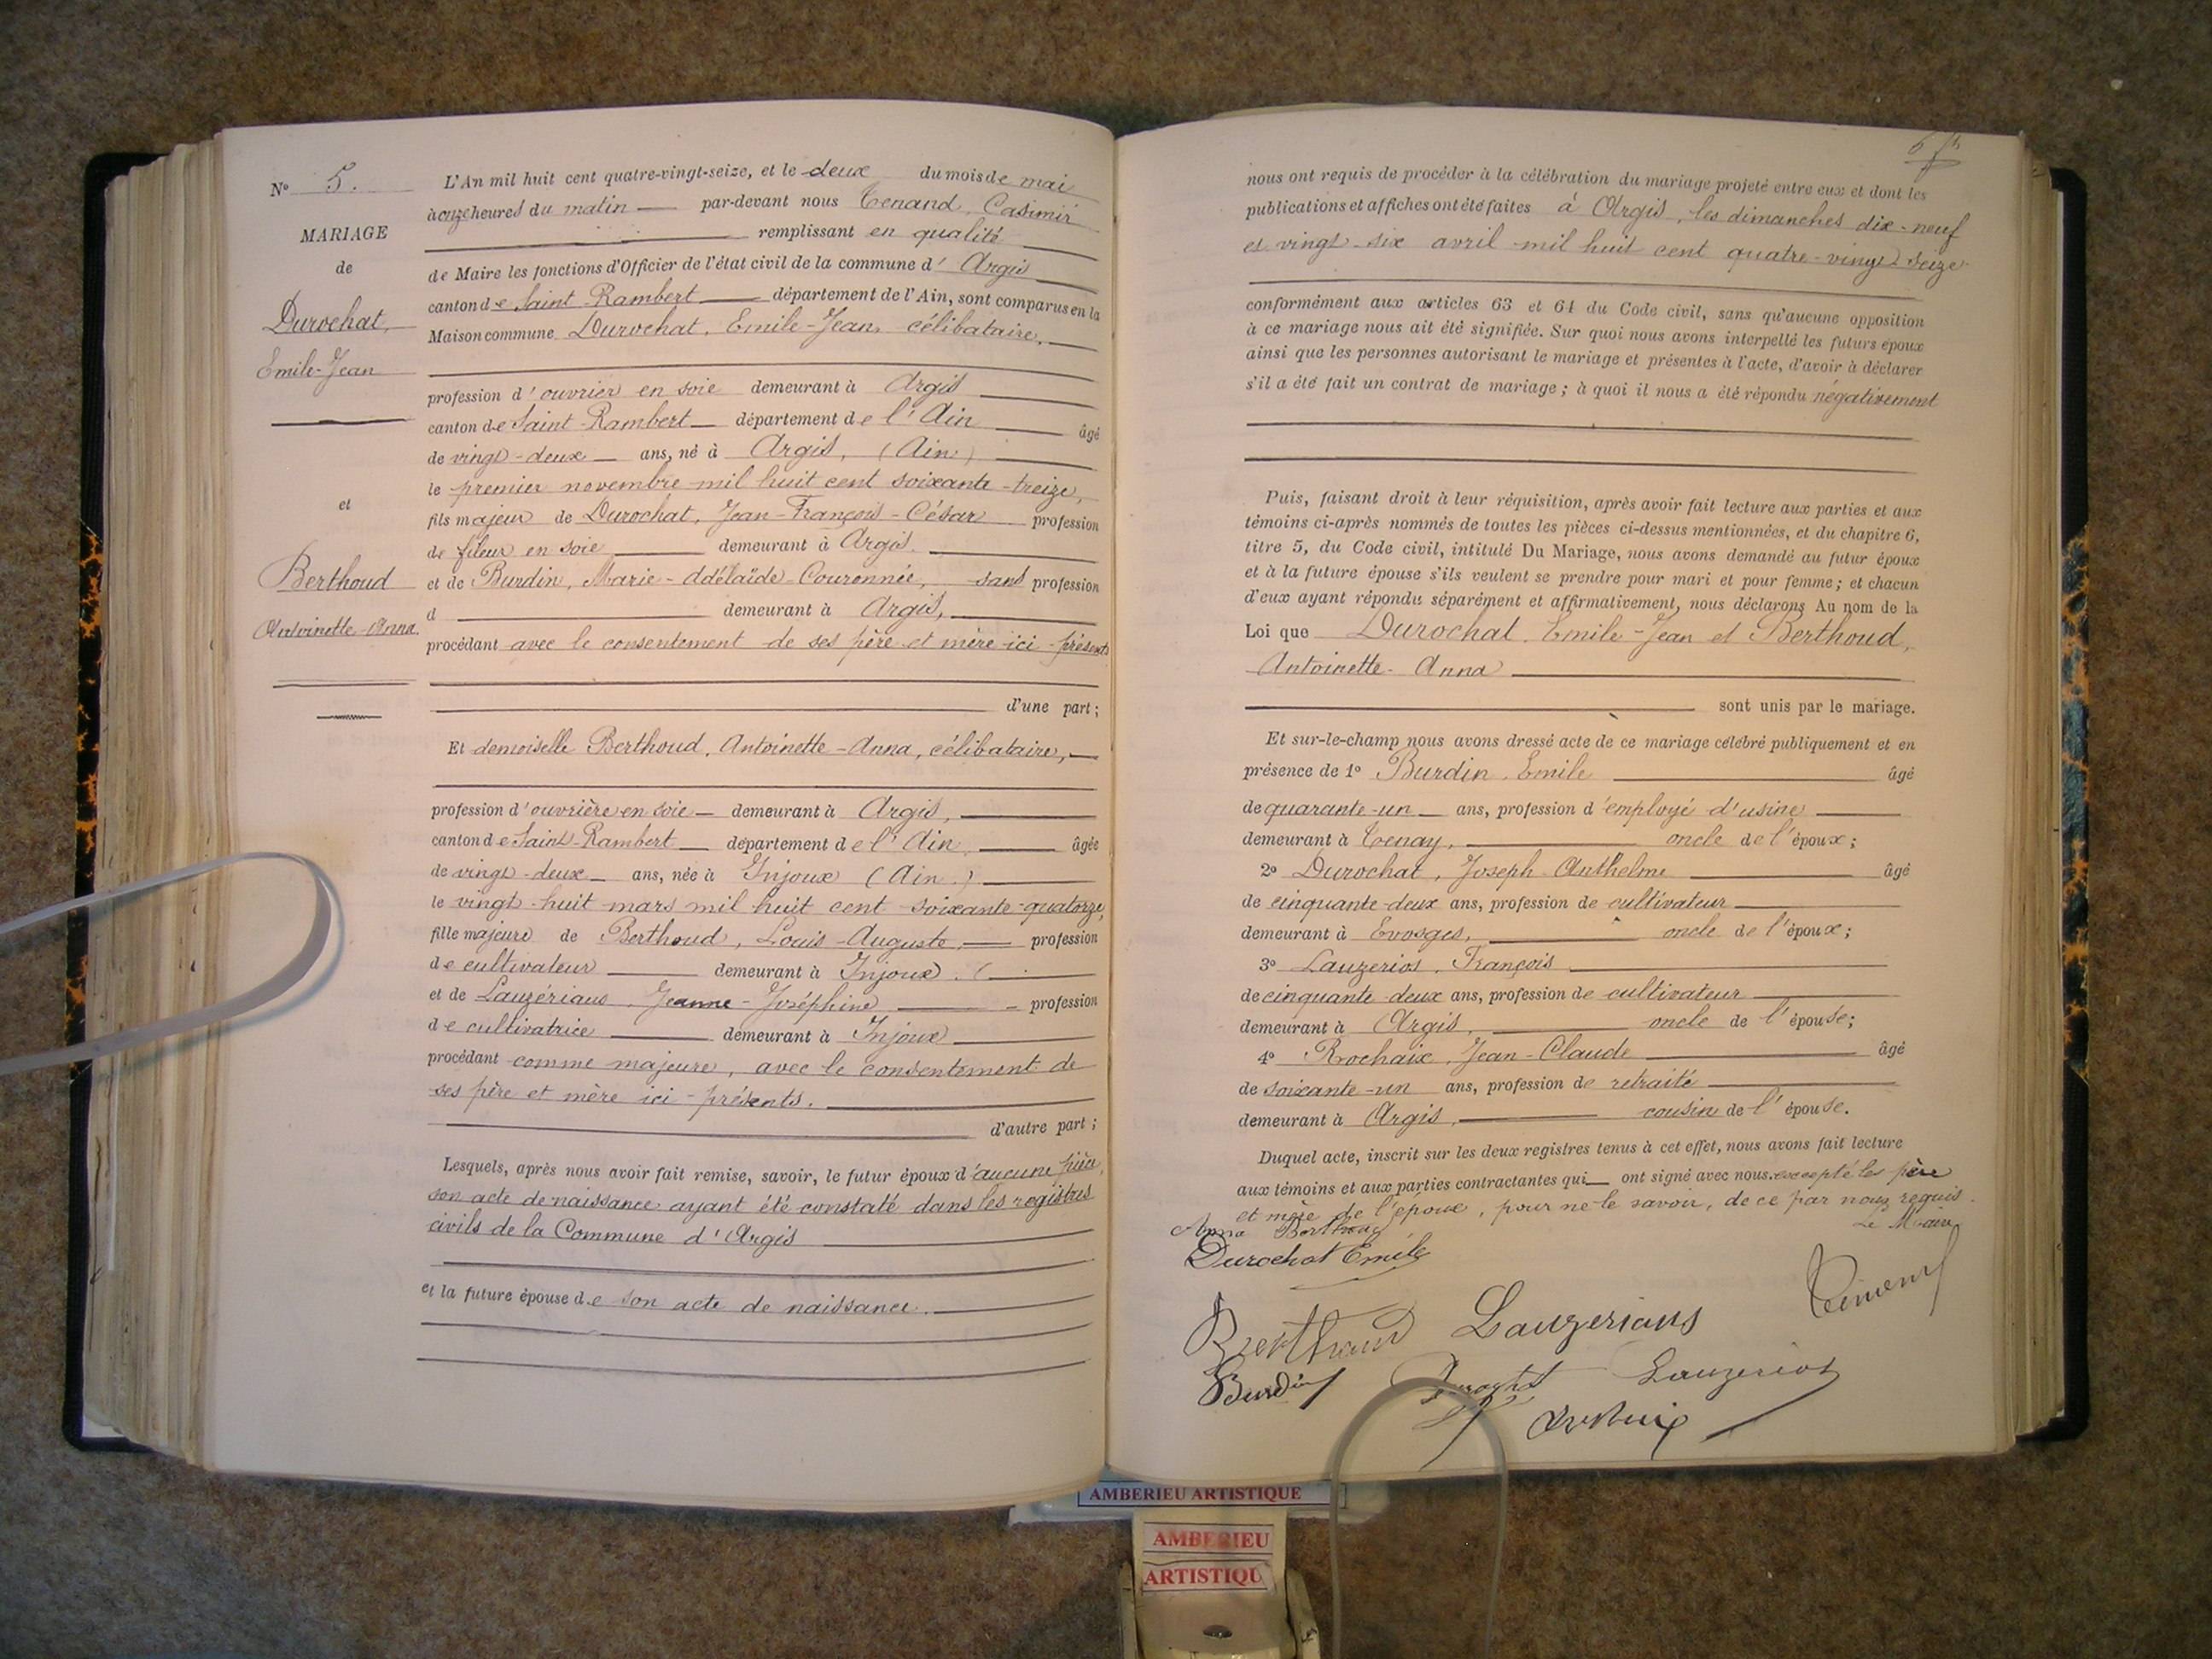 N° 5.
MARIAGE
de
Durochat,
Emile-Jean
et
Berthoud
Antoinette-Anna.
L'An mil huit cent quatre-vingt-seize, et le deux du mois de mai
à onze heures du matin par-devant nous Tenand, Casimir
remplissant en qualité
de Maire les fonctions d'Officier de l'état civil de la commune d' Argis
canton de Saint-Rambert département de l'Ain, sont comparus en la
Maison commune Durochat, Emile-Jean, célibataire,
profession d'ouvrier en soie demeurant à Argis
canton de Saint-Rambert département de l'Ain âgé
de vingt-deux ans, né à Argis, (Ain)
le premier novembre mil huit cent soixante-treize,
fils majeur de Durochat, Jean-François-César profession
de fileur en soie demeurant à Argis.
et de Burdin, Marie-Adélaïde-Couronnée, sans profession
d demeurant à Argis,
procédant avec le consentement de ses père et mère ici-présents
d'une part;
Et demoiselle Berthoud, Antoinette-Anna, célibataire,
profession d'ouvrière en soie demeurant à Argis,
canton de Saint-Rambert département de l'Ain, âgée
de vingt-deux ans, née à Injoux (Ain.)
le vingt-huit mars mil huit cent soixante-quatorze,
fille majeure de Berthoud, Louis-Auguste, profession
de cultivateur demeurant à Injoux. (
et de Lauzérians, Jeanne-Joséphine, profession
de cultivatrice demeurant à Injoux
procédant comme majeure, avec le consentement de
ses père et mère ici-présents.
d'autre part;
Lesquels, après nous avoir fait remise, savoir, le futur époux d'aucune pièce,
son acte de naissance ayant été constaté dans les registres
civils de la Commune d'Argis
et la future épouse de son acte de naissance.
nous ont requis de procéder à la célébration du mariage projeté entre eux et dont les
publications et affiches ont été faites à Argis, les dimanches dix-neuf
et vingt-six avril mil huit cent quatre-vingt-seize
conformément aux articles 63 et 64 du Code civil, sans qu'aucune opposition
à ce mariage nous ait été signifiée. Sur quoi nous avons interpellé les futurs époux
ainsi que les personnes autorisant le mariage et présentes à l'acte, d'avoir à déclarer
s'il a été fait un contrat de mariage; à quoi il nous a été répondu négativement
Puis, faisant droit à leur réquisition, après avoir fait lecture aux parties et aux
témoins ci-après nommés de toutes les pièces ci-dessus mentionnées, et du chapitre 6,
titre 5, du Code civil, intitulé Du Mariage, nous avons demandé au futur époux
et à la future épouse s'ils veulent se prendre pour mari et pour femme; et chacun
d'eux ayant répondu séparément et affirmativement, nous déclarons Au nom de la
Loi que Durochat Emile-Jean et Berthoud,
Antoinette-Anna
sont unis par le mariage.
Et sur-le-champ nous avons dressé acte de ce mariage célébré publiquement et en
présence de 1° Burdin, Emile âgé
de quarante-un ans, profession d'employé d'usine
demeurant à Tenay, oncle de l'époux;
2° Durochat, Joseph-Anthelme âgé
de cinquante-deux ans, profession de cultivateur
demeurant à Evosges, oncle de l'époux;
3° Lauzerios, François
de cinquante-deux ans, profession de cultivateur
demeurant à Argis, oncle de l'épouse;
4° Rochaix, Jean-Claude âgé
de soixante-un ans, profession de retraité
demeurant à Argis, cousin de l'épouse.
Duquel acte, inscrit sur les deux registres tenus à cet effet, nous avons fait lecture
aux témoins et aux parties contractantes qui ont signé avec nous, excepté les père
et mère de l'époux, pour ne le savoir, de ce par nous requis.
Anna Berthoud Le Maire
Durochat Emile
Berthoud Lauzerians
Burdin Durochat Lauzerios
AMBERIEU ARTISTIQUE
AMBERIEU
ARTISTIQU